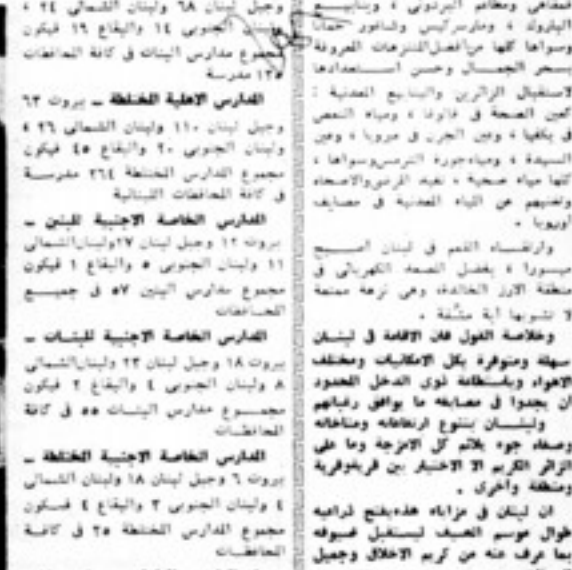 لمقاهي ومطاعم البردوني ، وينابيع
الباروك ، ومارسركيس وشاغور حمانا
وسواها كلها من أفضل المنتزهات المعروفة
بسحر الجمال وحسن استعدادها
لاستقبال الزائرين والينابيع المعدنية :
كعين الصحة في فالوغا ، ومياه النعص
في بكفيا ، وعين الجرن في مروبا ، وعين
السيدة ، ومياه جورة الترمس وسواها ،
كلها مياه صحية ، تفيد المرضى والاصحاء
وتغنيهم عن المياه المعدنية في مصايف
اوروبا .
وارتقاء القمم في لبنان اصبح
ميسورا ، بفضل المصعد الكهربائي في
منطقة الارز الخالدة، وهي نزهة ممتعة
لا تشوبها أية مشقة .
وخلاصة القول فان الاقامة في لبنان
سهلة ومتوفرة بكل الامكانيات ومختلف
الاهواء وباستطاعة ذوي الدخل المحدود
ان يجدوا في مصايفه ما يوافق رغباتهم
ولبنان بتنوع ارتفاعاته ومناخاته
وصفاء جوه يلائم كل الامزجة وما على
الزائر الكريم الا الاختيار بين قرية وقرية
ومنطقة وأخرى .
ان لبنان في مزاياه هذه يفتح ذراعيه
طوال موسم الصيف ليستقبل ضيوفه
بما عرف عنه من كريم الاخلاق وجميل
وجبل لبنان ٦٨ ولبنان الشمالي ٢٤ ،
ولبنان الجنوبي ١٤ والبقاع ١٦ فيكون
مجموع مدارس البنات في كافة المحافظات
١٣٥ مدرسة
المدارس الاهلية المختلطة ــ بيروت ٦٣
وجبل لبنان ١١٠ ولبنان الشمالي ٢٦ ،
ولبنان الجنوبي ٢٠ والبقاع ٤٥ فيكون
مجموع المدارس المختلطة ٢٦٤ مدرسة
في كافة المحافظات اللبنانية
المدارس الخاصة الاجنبية للبنين ــ
بيروت ١٢ وجبل لبنان ٢٧ ولبنان الشمالي
١١ ولبنان الجنوبي ٥ والبقاع ١ فيكون
مجموع مدارس البنين ٥٧ في جميع
المحافظات
المدارس الخاصة الاجنبية للبنات ــ
بيروت ١٨ وجبل لبنان ٢٣ ولبنان الشمالي
٨ ولبنان الجنوبي ٤ والبقاع ٢ فيكون
مجموع مدارس البنات ٥٥ في كافة
المحافظات
المدارس الخاصة الاجنبية المختلطة ــ
بيروت ٦ وجبل لبنان ١٨ ولبنان الشمالي
٤ ولبنان الجنوبي ٣ والبقاع ٤ فيكون
مجموع المدارس المختلطة ٣٥ في كافة
المحافظات